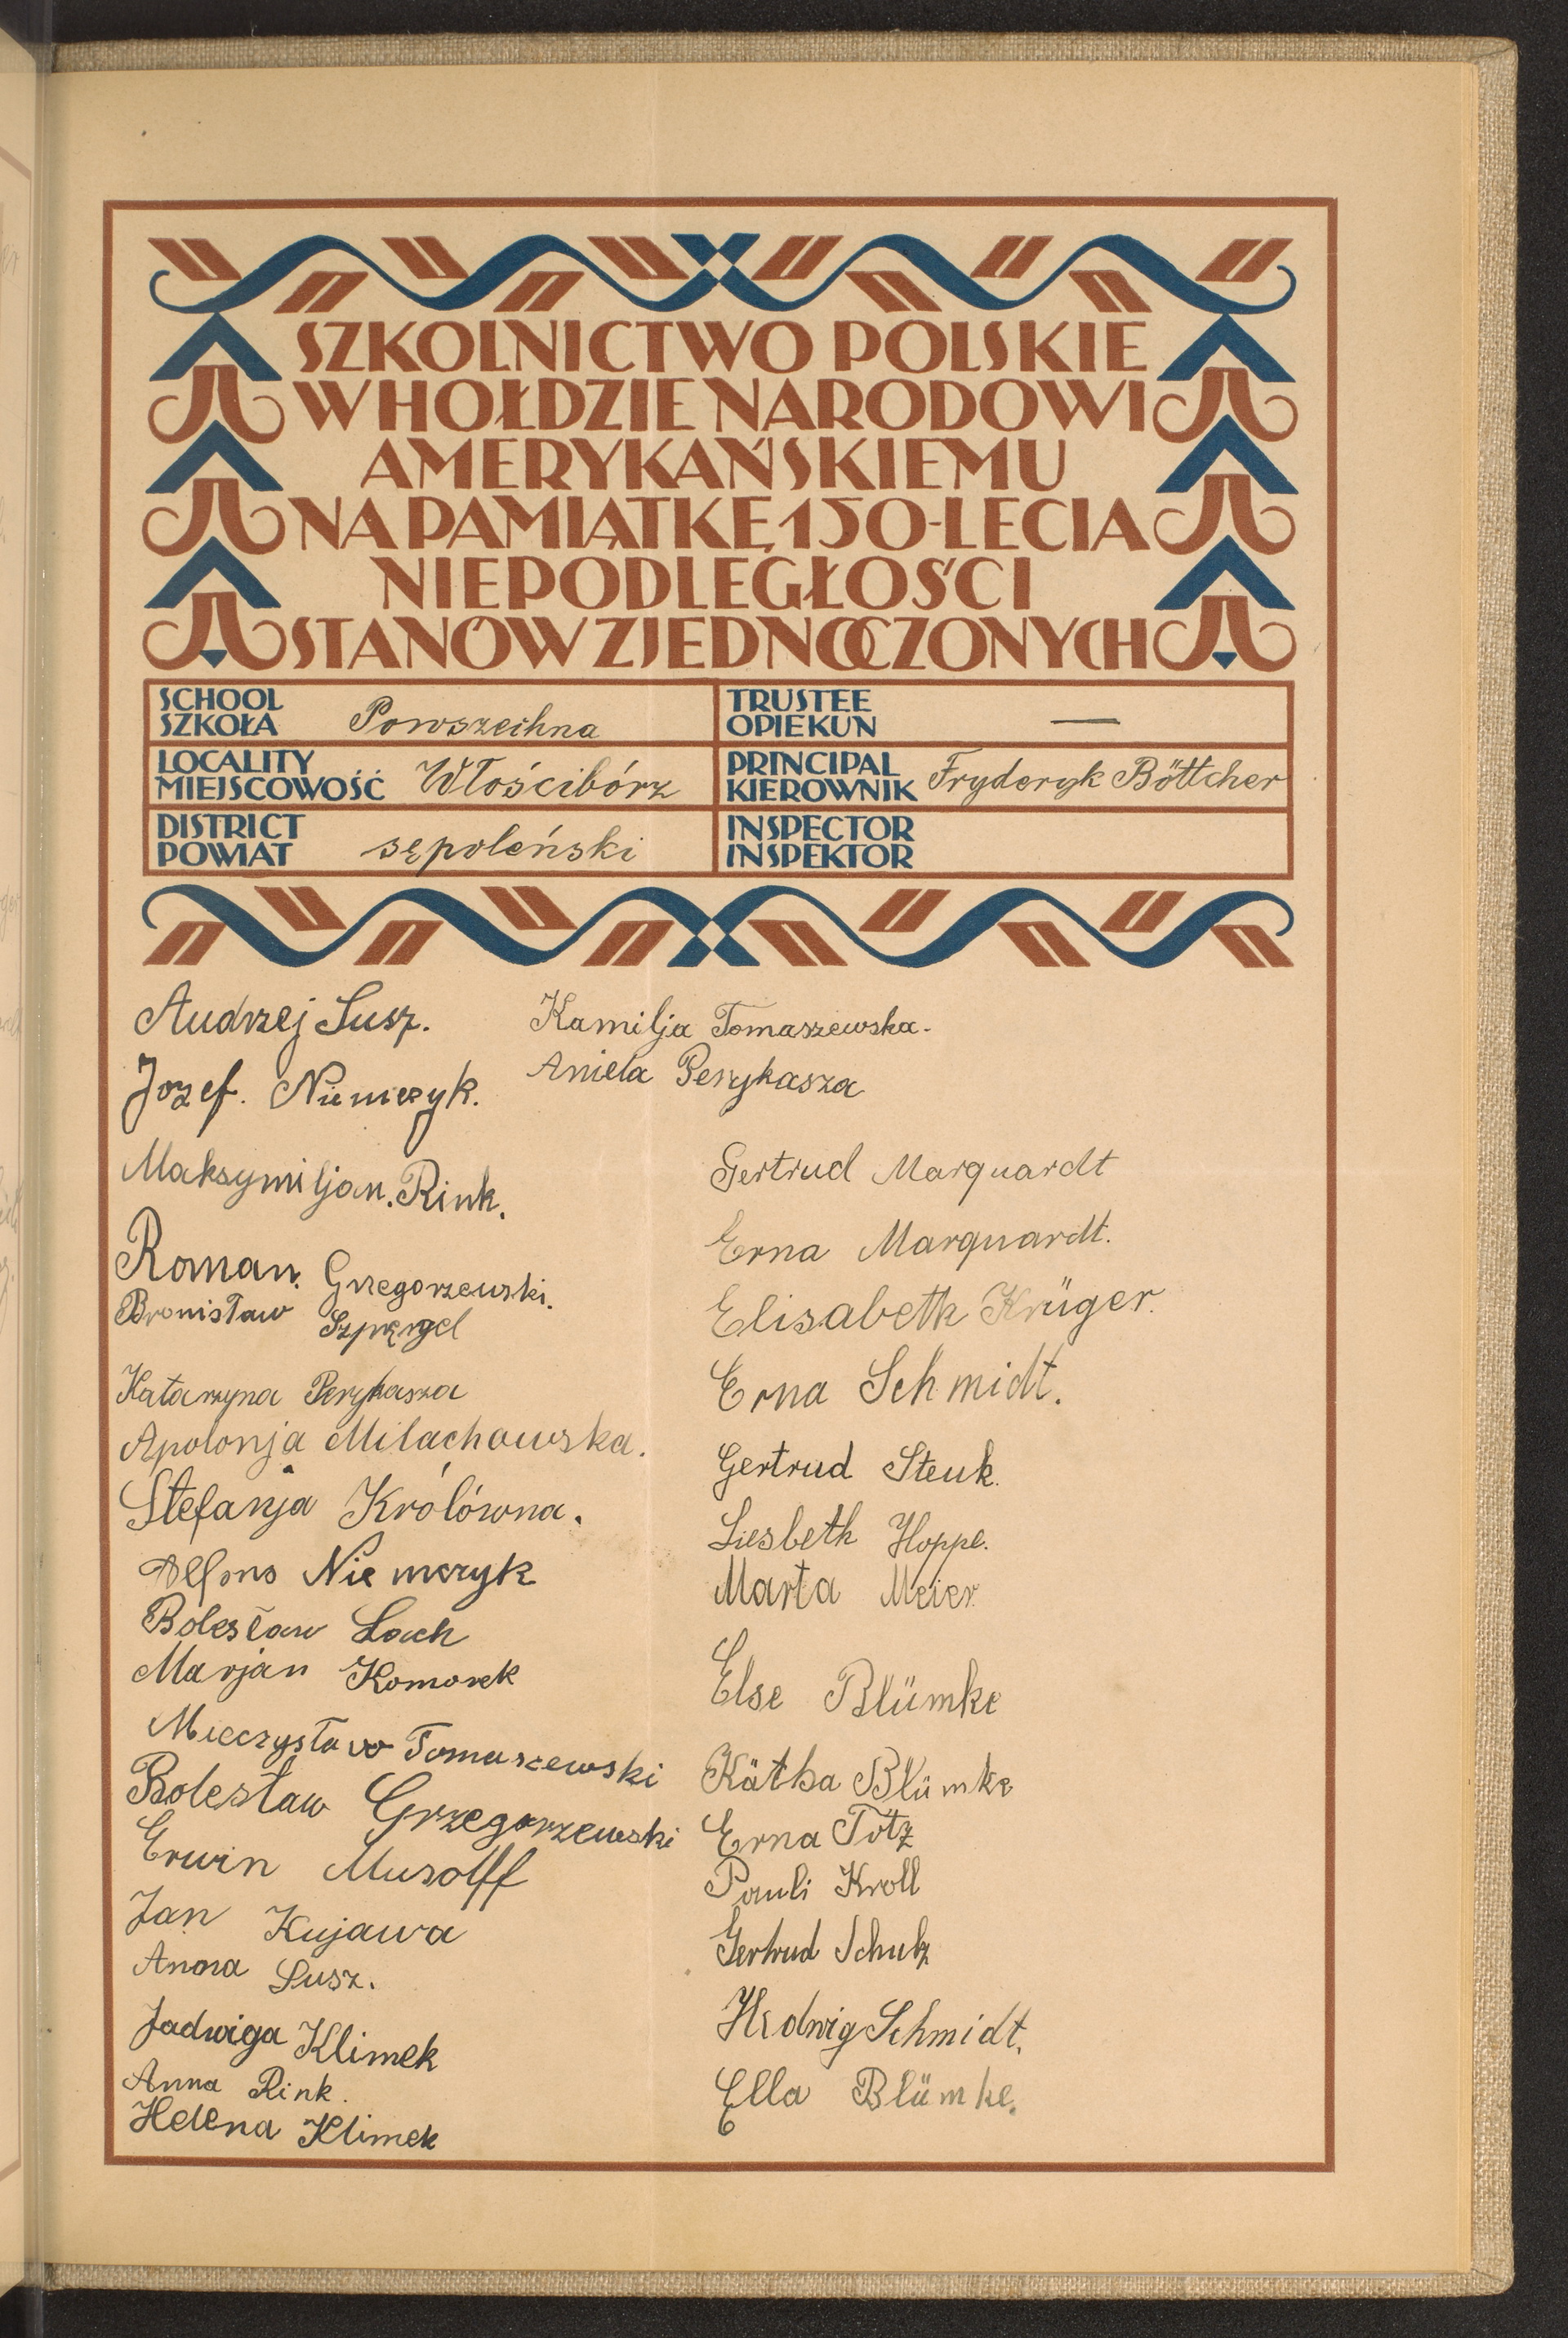 SZKOLNICTWO POLSKIE
W HOŁDZIE NARODOWI
AMERYKAŃSKIEMU
NA PAMIĄTKĘ 150-LECIA
NIEPODLEGŁOŚCI
STANÓW ZJEDNOCZONYCH
SCHOOL
SZKOŁA Powszechna
TRUSTEE
OPIEKUN —
LOCALITY
MIEJSCOWOŚĆ Włościbórz
PRINCIPAL
KIEROWNIK Fryderyk Böttcher
DISTRICT
POWIAT sępoleński
INSPECTOR
INSPEKTOR
Andrzej Susz.
Jozef. Niemczyk.
Maksymiljan. Rink.
Roman. Grzegorzewski.
Bronisław Szpręgel
Katarzyna Perykasza
Apolonja Milachowska.
Stefanja Królówna.
Alfons Niemczyk
Bolesław Lach
Marjan Komorek
Mieczysław Tomaszewski
Bolesław Grzegorzewski
Erwin Musolff
Jan Kujawa
Anna Susz.
Jadwiga Klimek
Anna Rink.
Helena Klimek
Kamilja Tomaszewska.
Aniela Perykasza
Gertrud Marquardt
Erna Marquardt.
Elisabeth Krüger.
Erna Schmidt.
Gertrud Steuk.
Liesbeth Hoppe.
Marta Meier.
Else Blümke
Kätha Blümke
Erna Tötz
Pauli Kroll
Gertrud Schulz
Hedwig Schmidt.
Ella Blümke.